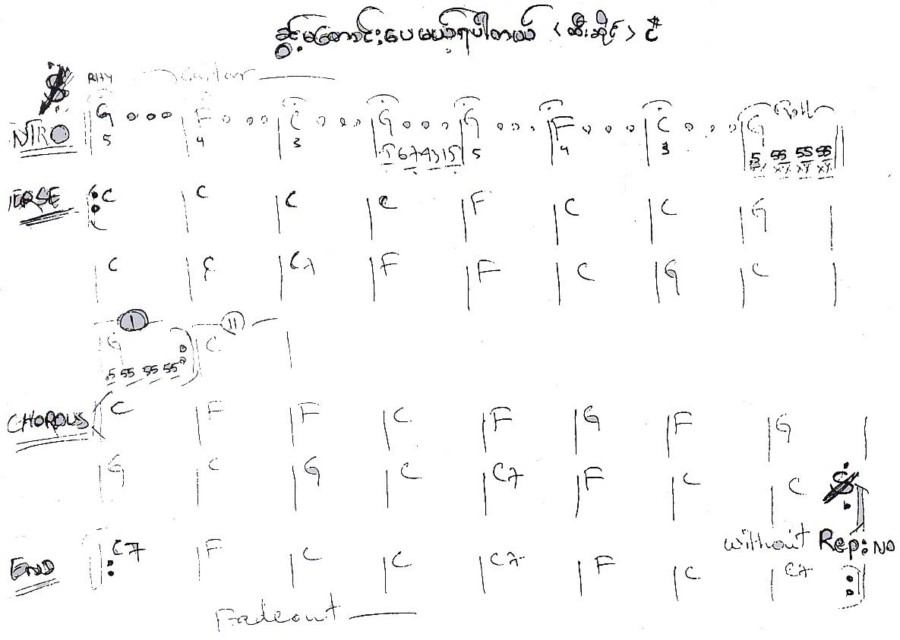 ခွင့်မတောင်းပေမယ့်ရပါတယ် (ဆီးဆိုင်) ငံ
Guitar
INTRO | G ... | F ... | C ... | G ... | G ... | F ... | C ... | G Roll
5 4 3 5 674315 5 4 3 5 55 55 55
VERSE |: C | C | C | C | F | C | C | G |
| C | C | C7 | F | F | C | G | C |
I II
| G :| C |
5 55 55 55
CHOROUS | C | F | F | C | F | G | F | G |
| G | C | G | C | C7 | F | C | C
without Rep: NO
END |: C7 | F | C | C | C7 | F | C | C7 :|
Fadeout